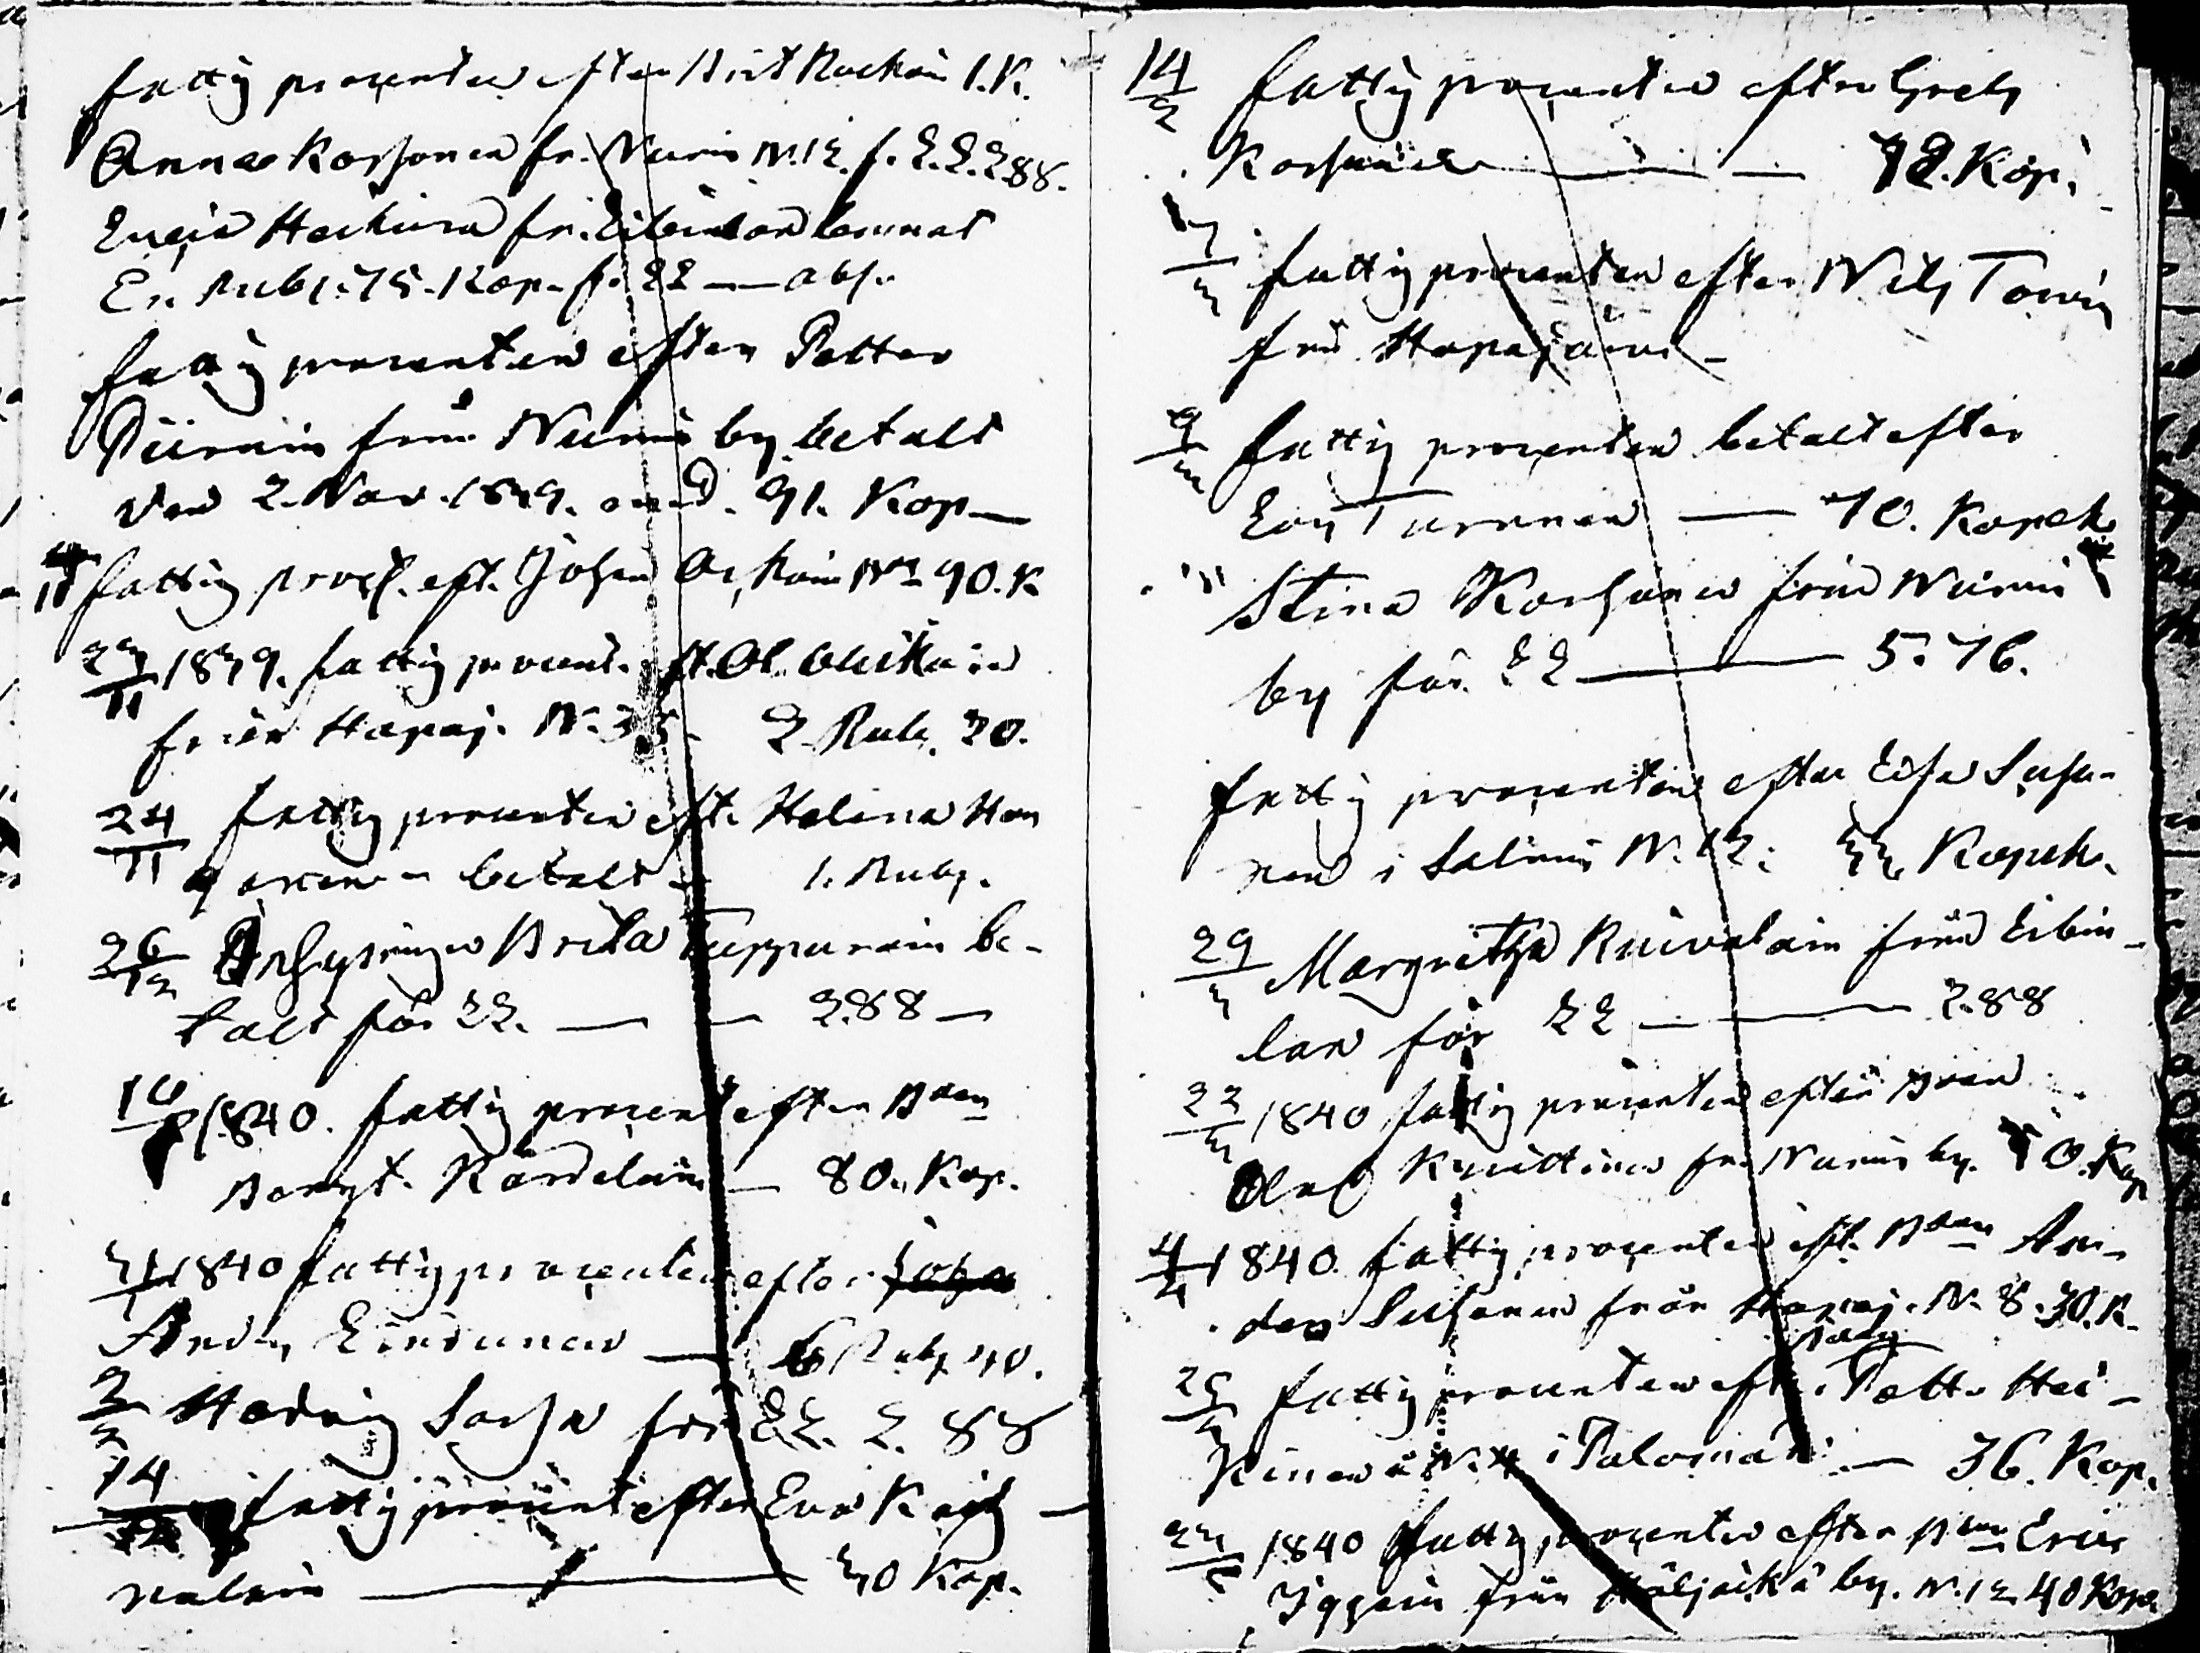 fattig procenten efter Brit Ruchain 1. K.
Anna Korhonen fr. Nurmis N. 12. f. 22. 288.
Lucia Heikura fr. Eibinlan lemnat
En Rub. 75. Kop. f. 22 — obs.
fattig procenten efter Petter
Piirain från Nurmis by betalt
den 2. Nov. 1839. med. 91. Kop —
11 fattig proc. eft. Johan N. 90. K
23/11 1839. fattig procent. eft. Ol.
från Hapaj. N. 35. 2. Rub. 20.
24/11 fattig procenten eft. Helena Hon
betalt — 1. Rub.
26/12 Brita Tuppurain be-
talt för 22. — — 288 —
16 1840. fattig procent efter Bden
Bengt. Kärdelain — 80. Kop.
1840 fattig procenten efter
Ands — 6 Rub 40.
2/2 Hedvig Sorsa för 22. 2. 88
14 fattig procent efter Eva Keis-
nalain — 30 Kop.
14/2 fattig procenten efter Greta
Korhonen — — 72. Kop.
7/3 fattig procenten efter Nils Toivi
frå Hapajärvi —
9/3 fattig procenten betalt efter
Turunen — 70. Kopek
Stina Korhonen från Nurmis
by för 22 — 5. 76.
fattig procenten efter Elsa Susu-
nen i Salmis N. 12: 33 Kopek.
29/3 Margretha Kuivalain från Eibin-
lan för 22 — 2.88
23/3 1840 fattig procenten efter Bden
Olof Knuutinen fr. Nurmis by. 70. Kop
4/4 1840. fattig procenten eft. Bden An-
ders Susunen från Hapaj. N. 8. 30. K.
25/4 fattig procenten efter Pett. Hei-
kinen å N. 4 i Palomäki — 36. Kop.
1840 fattig procenten efter Bden Eric
från Höljäkä by. N. 12 40 Kop.